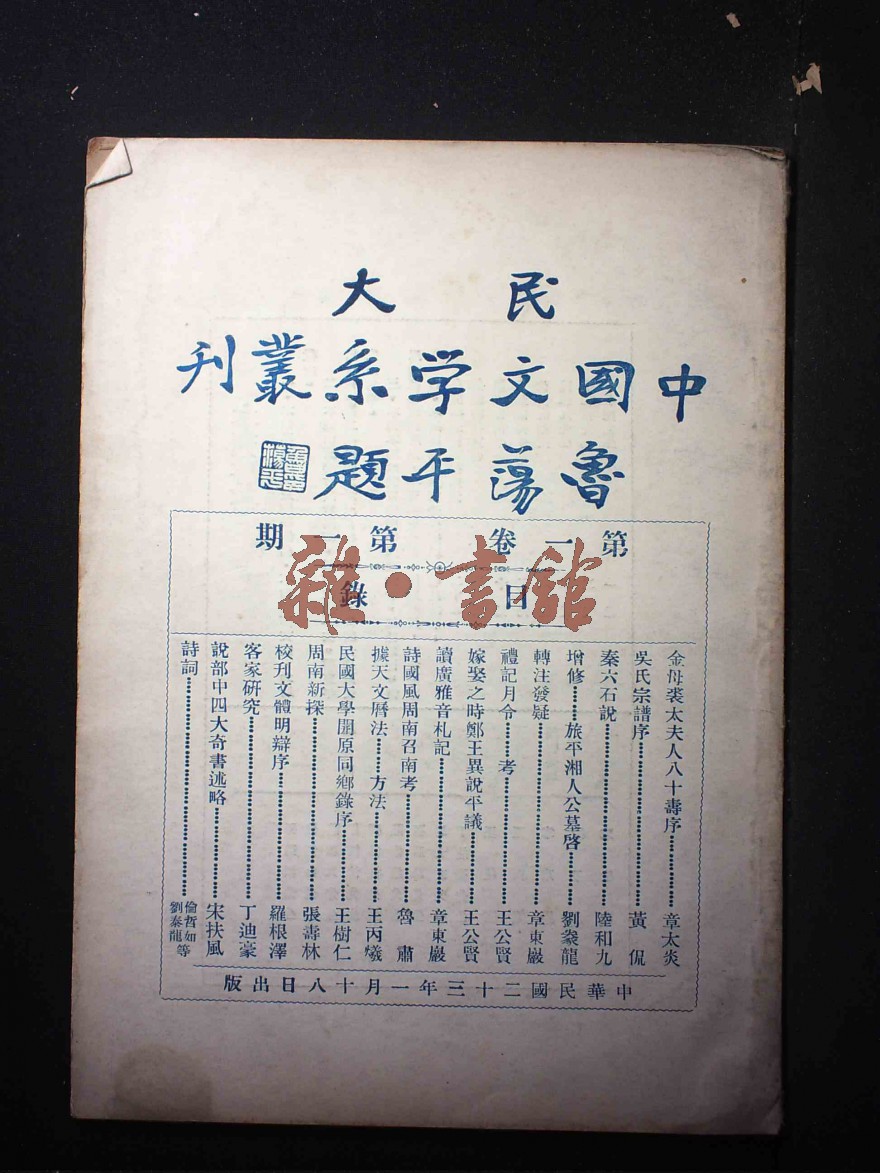 民大
中國文学系叢刊
魯蕩平題
魯蕩平
第一卷 第一期
目錄
雜·書館
金母裘太夫人八十壽序……章太炎
吳氏宗譜序……黃侃
秦六石說……陸和九
增修……旅平湘人公墓啓……劉彖龍
轉注發疑……章東巖
禮記月令……考……王公賢
嫁娶之時鄭王異說平議……王公賢
讀廣雅音札記……章東巖
詩國風周南召南考……魯肅
據天文曆法……方法……王丙爔
民國大學開原同鄉錄序……王樹仁
周南新探……張壽林
校刊文體明辯序……羅根澤
客家研究……丁迪豪
說部中四大奇書述略……宋扶風
詩詞……倫哲如 劉泰龍 等
中華民國二十三年一月十八日出版